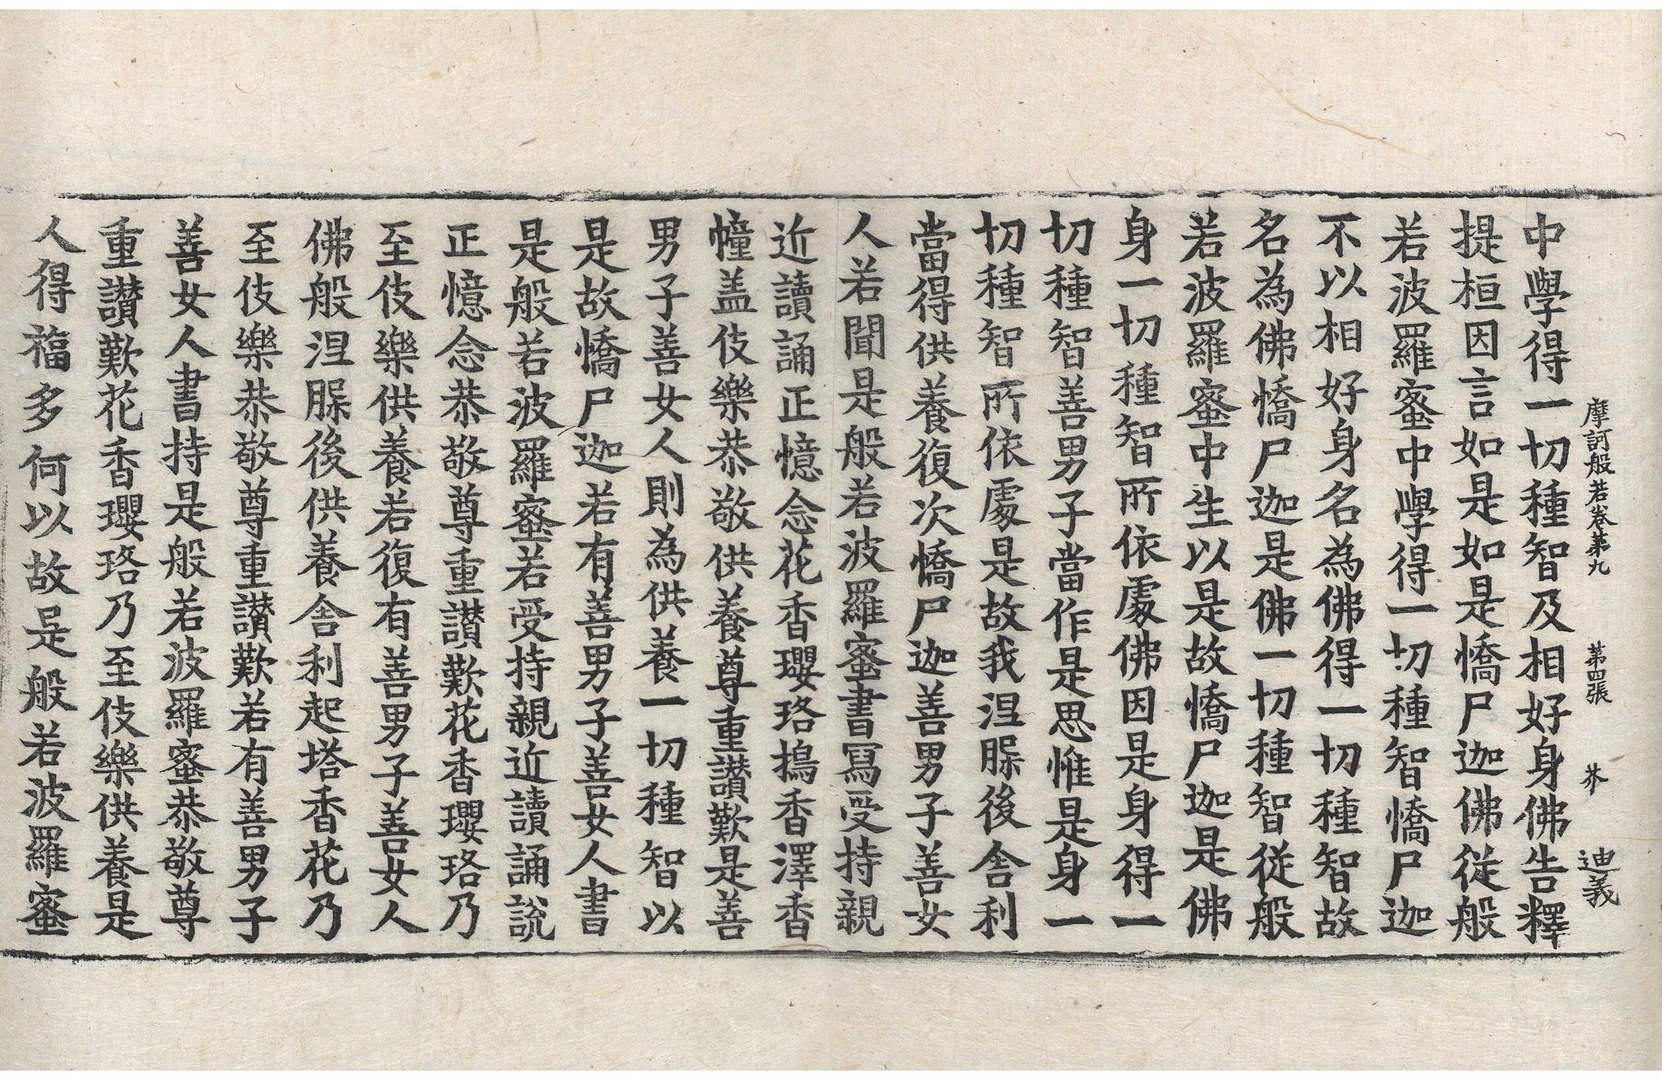 摩訶般若卷第九 第四張 芥 迪義
中學得一切種智及相好身佛告釋
提桓因言如是如是憍尸迦佛從般
若波羅蜜中學得一切種智憍尸迦
不以相好身名為佛得一切種智故
名為佛憍尸迦是佛一切種智從般
若波羅蜜中生以是故憍尸迦是佛
身一切種智所依處佛因是身得一
切種智善男子當作是思惟是身一
切種智所依處是故我涅槃後舍利
當得供養復次憍尸迦善男子善女
人若聞是般若波羅蜜書寫受持親
近讀誦正憶念花香瓔珞搗香澤香
幢盖伎樂恭敬供養尊重讃歎是善
男子善女人則為供養一切種智以
是故憍尸迦若有善男子善女人書
是般若波羅蜜若受持親近讀誦說
正憶念恭敬尊重讃歎花香瓔珞乃
至伎樂供養若復有善男子善女人
佛般涅槃後供養舍利起塔香花乃
至伎樂恭敬尊重讃歎若有善男子
善女人書持是般若波羅蜜恭敬尊
重讃歎花香瓔珞乃至伎樂供養是
人得福多何以故是般若波羅蜜